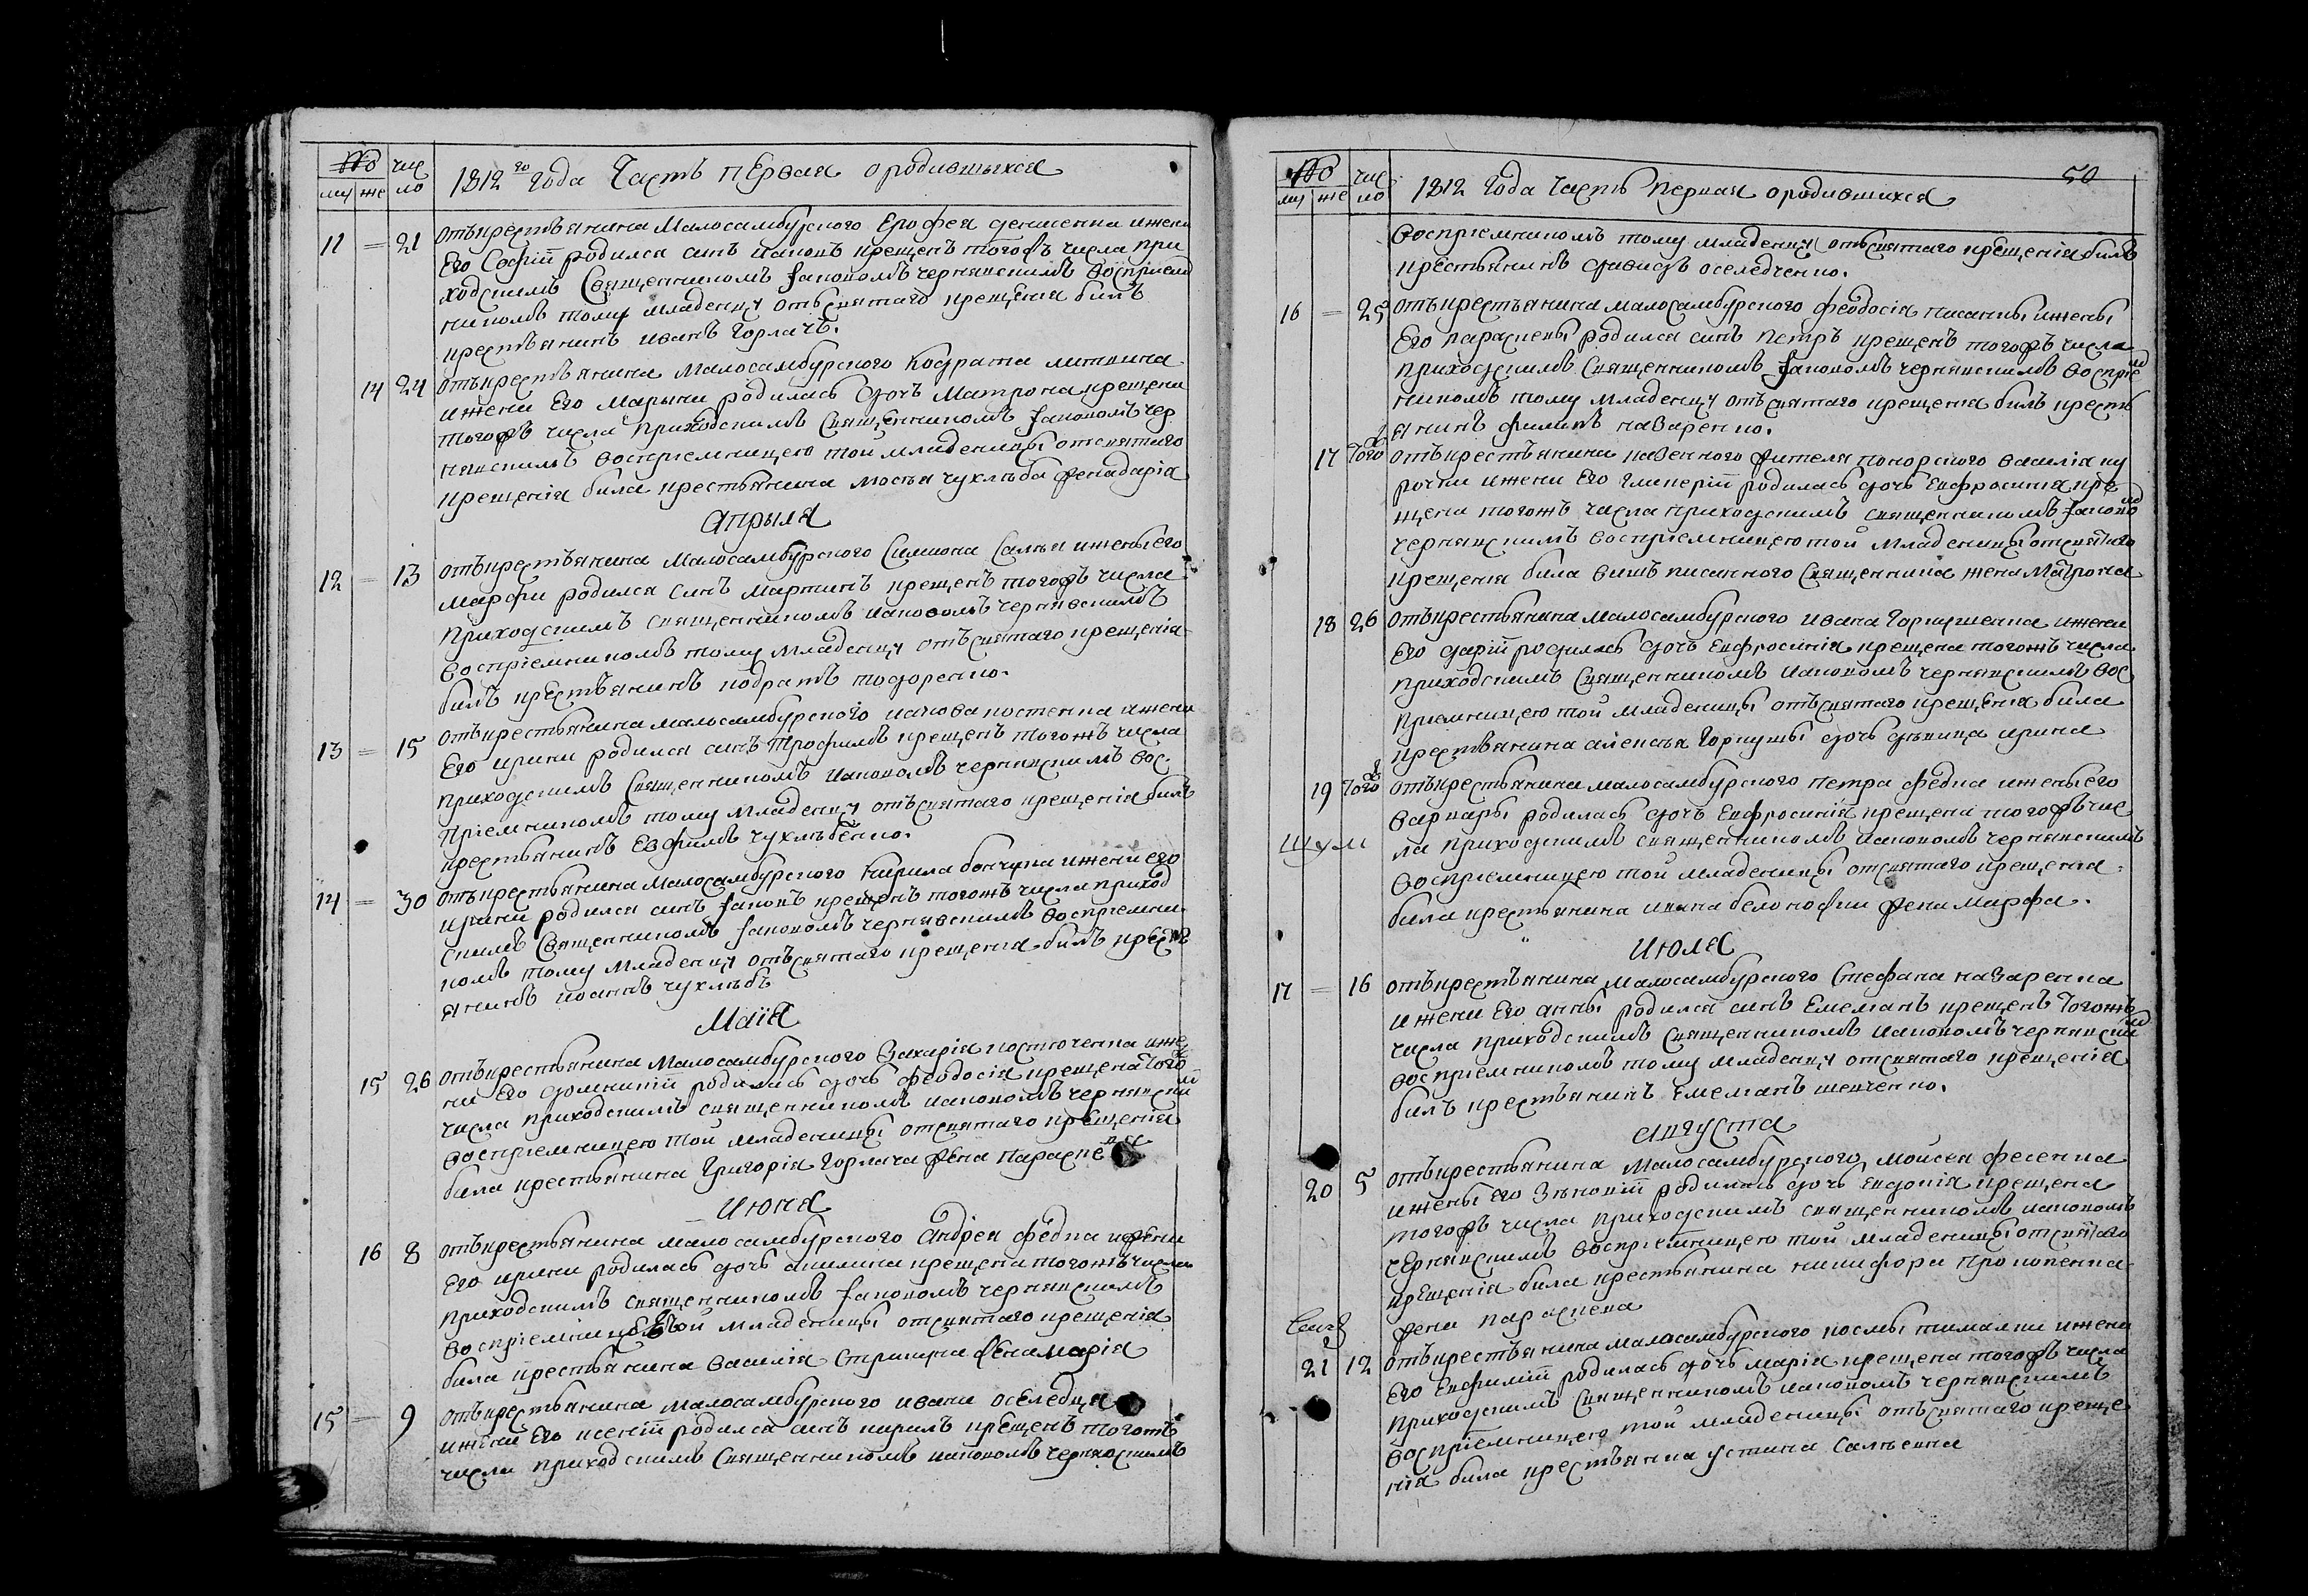 № чис
му же ло 1812го года Часть первая о родившыхся
11 = 21 отъ крестьянина Малосамбурского Ерофея денисенка и жени
Его Софіи родился синъ Иаковъ крещенъ тогожъ числа при
ходскимъ Священникомъ Іаковомъ Чернявскимъ восприем
никомъ тому младенцу отъ святаго крещенія билъ
крестьянинъ Иванъ Горлачъ.
14 24 отъ крестьянина Малосамбурского Кодрата литвина
и жени Его Марыни родилась дочъ Матрона крещени
тогожъ числа приходскимъ Священникомъ Іаковомъ Чер
нявскимъ восприемницею той младеницы от святаго
крещенія била крестьянина Мосѣя Чухлѣба жена дарія
Апрыля
12 = 13 отъ крестьянина Малосамбурского Симиона Салѣя и жены его
Марфи родился Синъ Мартинъ крещенъ тогожъ числа
приходскимъ священникомъ Иаковомъ Чернявскимъ
воспріемникомъ тому младенцу отъ святаго крещенія
билъ крестьянинъ кодратъ тодоренко.
13 = 15 отъ крестьянина малосамбурского иакова костенка и жени
Его ирини родился синъ Трофимъ крещенъ тогожъ числа
приходскимъ Священникомъ Иаковомъ Чернявскимъ вос
пріемникомъ тому младенцу отъ святаго крещенія билъ
крестьянинъ Евфимъ Чухлѣбенко.
14 = 30 отъ крестьянина Малосамбурского Кирила бончука и жени его
ирини родился синъ Іаковъ крещенъ тогожъ числа приход
скимъ Священникомъ Іаковомъ Чернявскимъ воспріемни
комъ тому младенцу отъ святаго крещенія билъ крест
янинъ иоаннъ Чухлѣбъ
Маія
15 26 отъ крестьянина Малосамбурского Захарія костюченка и же
ни Его домникіи родилась дочъ феодосія крещена того
числа приходскимъ священникомъ Иаковомъ Чернявски
воспріемницею той младеницы от святаго крещенія
била крестьянина Григорія Горлача жена Параске
Июня
16 8 отъ крестьянина Малосамбурского Андрея федка и жени
Его ирини родилась дочъ акилина крещена тогожъ числа
приходскимъ священникомъ Іаковомъ Чернявскимъ
воспріемницею той младеницы от святаго крещенія
била крестьянина василія Стрижака жена марія
15 = 9 отъ крестьянина Малосамбурского ивана оселедца
и жени Его ксеніи родился синъ кирилъ крещенъ тогожъ
числа приходскимъ Священникомъ иаковомъ Чернявскимъ
№ чис 50
му же ло 1812 года часть Первая о родившихся
Воспріемникомъ тому младенцу отъ святаго крещенія билъ
крестьянинъ давидъ оселедченко.
16 = 25 отъ крестьянина малосамбурского феодосія писанки и жены
Его параскевы родился синъ Петръ крещенъ тогожъ числа
приходскимъ Священникомъ Іаковомъ Чернявскимъ воспріем
никомъ тому младенцу отъ святаго крещенія билъ кресть
янинъ филипъ назаренко.
17 того отъ крестьянина казенного жителя понорского василія ку
рочки и жени Его Гликеріи родилась дочъ Евфросинія кре
щена тогожъ числа приходскимъ священникомъ Іаково
Чернявскимъ воспріемницею той младеницы от святаго
крещенія била вишъ писанного Священника жена Матрона
18 26 отъ крестьянина малосамбурского ивана Горкушенка и жени
Его даріи родилась дочъ Евфросинія крещена тогожъ числа
приходскимъ Священникомъ Иаковомъ Чернявскимъ вос
приемницею той младеницы отъ святаго крещенія била
крестьянина алексѣя Горкуши дочъ дѣвица ирина
19 того отъ крестьянина малосамбурского петра федка и жены его
варвары родилась дочъ Евфросинія крещена тогожъ чис
ла приходскимъ священникомъ Иаковомъ Чернявскимъ
воспріемницею той младеницы от святаго крещенія
била крестьянина ивана белоножки жена марфа.
Июля
17 = 16 отъ крестьянина Малосамбурского Стефана назаренка
и жени Его анны родился синъ Емелианъ крещенъ тогожъ
числа приходскимъ Священникомъ иаковомъ Чернявски
воспріемникомъ тому младенцу от святаго крещенія
билъ крестьянинъ Емелианъ шевченко.
Августа
20 5 отъ крестьянина Малосамбурского моисея фесенка
и жены Его Зѣновіи родилась дочъ Евдокія крещена
тогожъ числа приходскимъ священникомъ иаковомъ
Чернявскимъ воспріемницею той младеницы от святаго
крещенія била крестьянина никифора Прокопенка
жена параскева
21 12 отъ крестьянина малосамбурского космы тималки и жени
Его Евфиміи родилась дочъ марія крещена тогожъ числа
приходскимъ священникомъ иаковомъ Чернявскимъ
воспріемницею той младеницы отъ святаго креще
нія била крестьянка устина Салѣевна